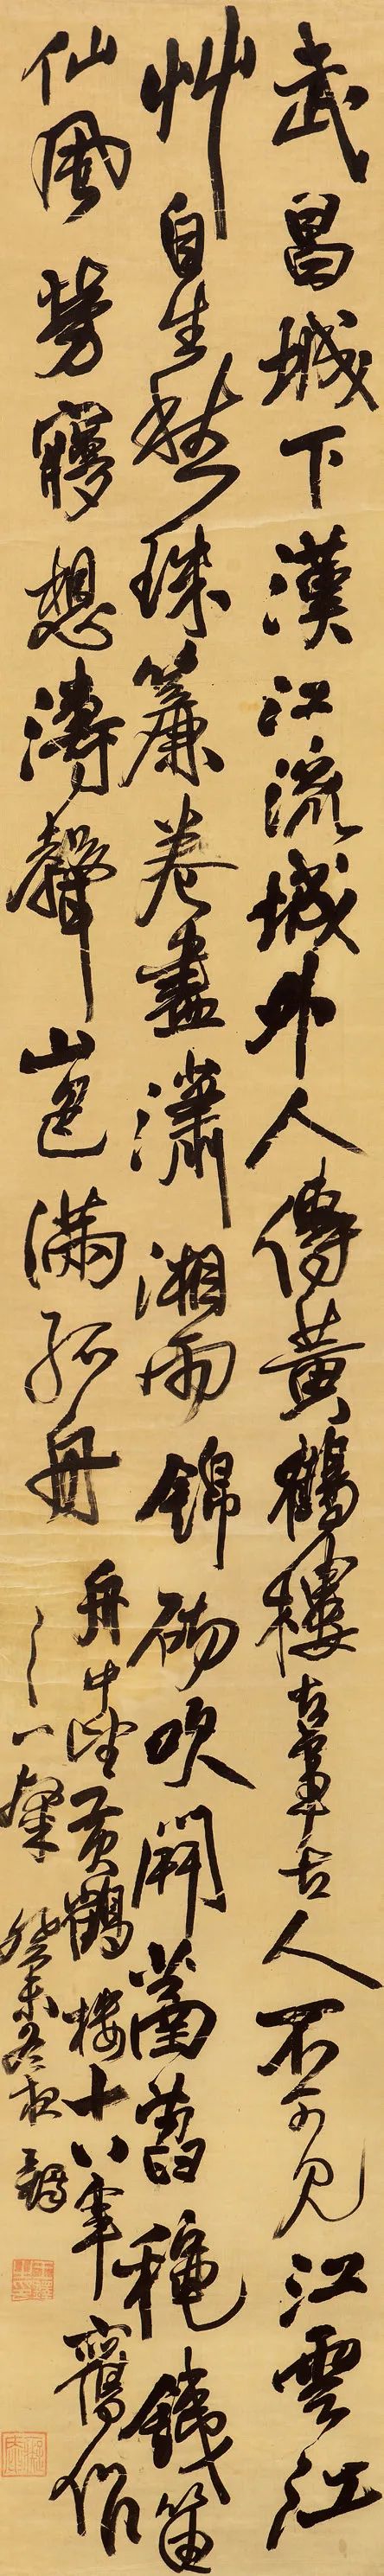 武昌城下漢江流城外人傳黃鶴樓古事古人不可見江雲江
艸自生愁珠簾卷盡瀟湘雨錦砌吹開菡萏秋鐵笛
仙風勞寤想濤聲山色滿孤舟
舟中望黃鶴樓十八年舊作
一癸未冬夜鐸